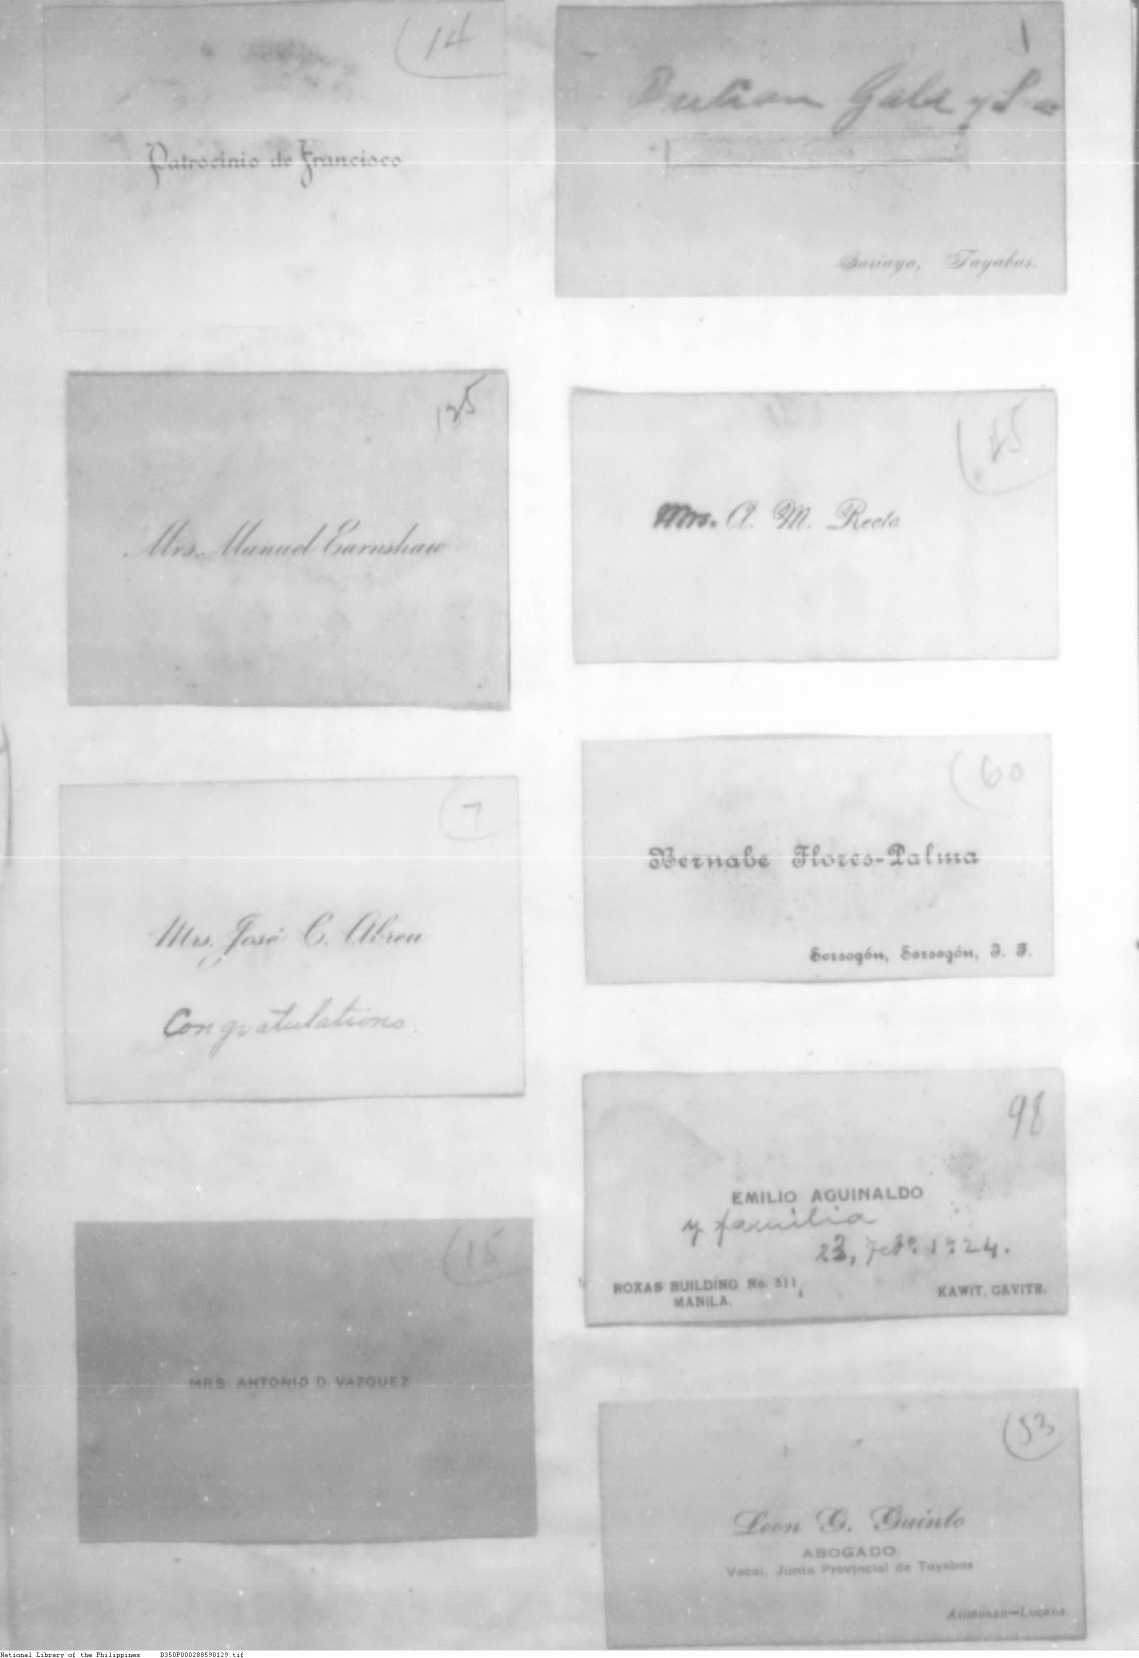 14
Patrocinio de Francisco
125
Mrs. Manuel Earnshaw
7
Mrs. José C. Abreu
Congratulations.
15
MRS. ANTONIO D. VAZQUEZ
1
Gala y
Sariaya, Tayabas.
Mrs. A. M. Recto
60
Bernabe Flores-Palma
Sorsogón, Sorsogón, I. F.
98
EMILIO AGUINALDO
y familia
23, Feb. 1924.
ROXAS BUILDING No. 311,
MANILA.
KAWIT, CAVITE.
53
Leon G. Guinto
ABOGADO
Vocal, Junta Provincial de Tayabas
Atimonan—Lucena
National Library of the Philippines D350P000288590129.tif